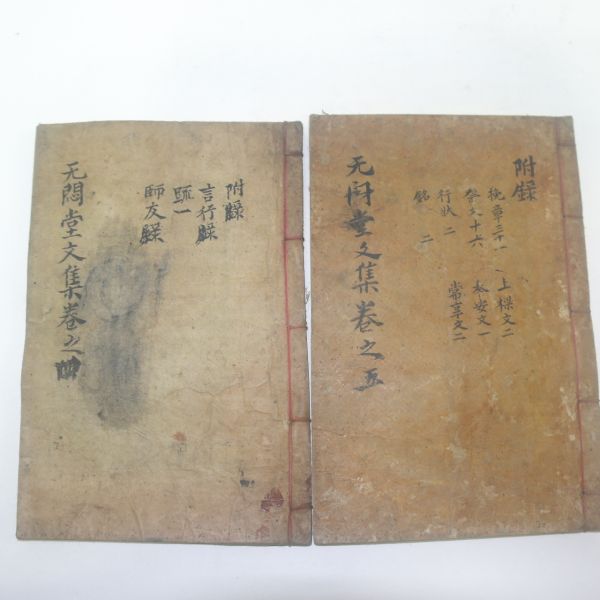 附錄
言行錄
疏一
師友錄
无悶堂文集卷之四
附錄
挽章三十一、上樑文二
祭文十六 奉安文一
行狀 二 常享文二
銘 二
无悶堂文集卷之五